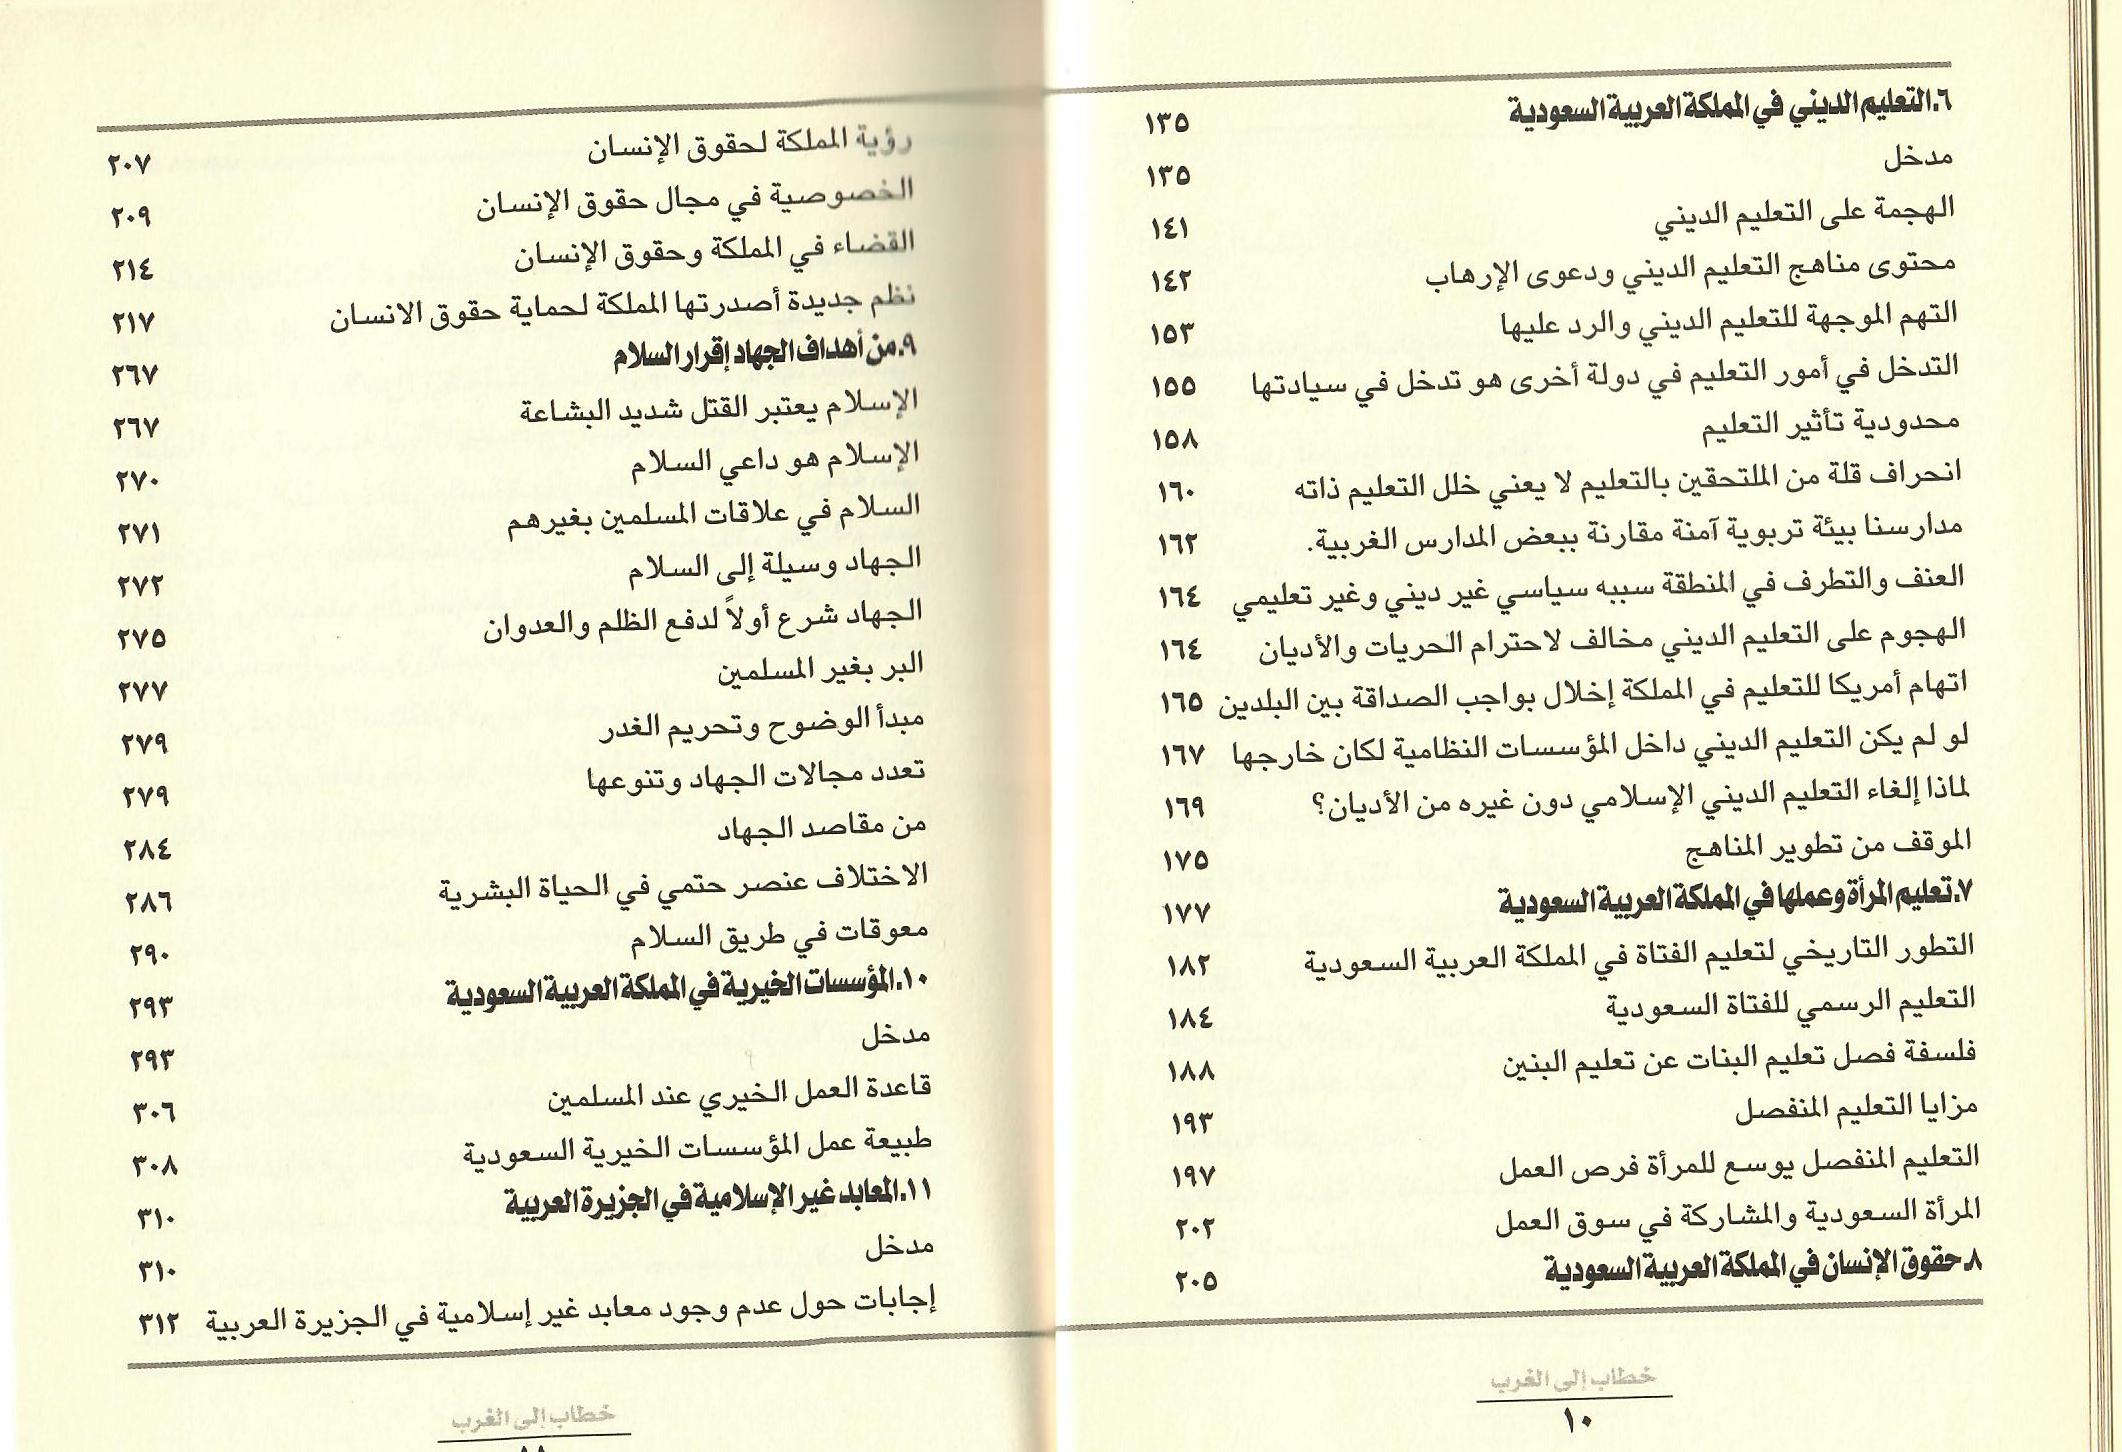 ٦.التعليم الديني في المملكة العربية السعودية ١٣٥
مدخل ١٣٥
الهجمة على التعليم الديني ١٤١
محتوى مناهج التعليم الديني ودعوى الإرهاب ١٤٢
التهم الموجهة للتعليم الديني والرد عليها ١٥٣
التدخل في أمور التعليم في دولة أخرى هو تدخل في سيادتها ١٥٥
محدودية تأثير التعليم ١٥٨
انحراف قلة من الملتحقين بالتعليم لا يعني خلل التعليم ذاته ١٦٠
مدارسنا بيئة تربوية آمنة مقارنة ببعض المدارس الغربية. ١٦٢
العنف والتطرف في المنطقة سببه سياسي غير ديني وغير تعليمي ١٦٤
الهجوم على التعليم الديني مخالف لاحترام الحريات والأديان ١٦٤
اتهام أمريكا للتعليم في المملكة إخلال بواجب الصداقة بين البلدين ١٦٥
لو لم يكن التعليم الديني داخل المؤسسات النظامية لكان خارجها ١٦٧
لماذا إلغاء التعليم الديني الإسلامي دون غيره من الأديان؟ ١٦٩
الموقف من تطوير المناهج ١٧٥
٧.تعليم المرأة وعملها في المملكة العربية السعودية ١٧٧
التطور التاريخي لتعليم الفتاة في المملكة العربية السعودية ١٨٢
التعليم الرسمي للفتاة السعودية ١٨٤
فلسفة فصل تعليم البنات عن تعليم البنين ١٨٨
مزايا التعليم المنفصل ١٩٣
التعليم المنفصل يوسع للمرأة فرص العمل ١٩٧
المرأة السعودية والمشاركة في سوق العمل ٢٠٢
٨.حقوق الإنسان في المملكة العربية السعودية ٢٠٥
خطاب إلى الغرب
١٠
رؤية المملكة لحقوق الإنسان ٢٠٧
الخصوصية في مجال حقوق الإنسان ٢٠٩
القضاء في المملكة وحقوق الإنسان ٢١٤
نظم جديدة أصدرتها المملكة لحماية حقوق الانسان ٢١٧
٩.من أهداف الجهاد إقرار السلام ٢٦٧
الإسلام يعتبر القتل شديد البشاعة ٢٦٧
الإسلام هو داعي السلام ٢٧٠
السلام في علاقات المسلمين بغيرهم ٢٧١
الجهاد وسيلة إلى السلام ٢٧٢
الجهاد شرع أولاً لدفع الظلم والعدوان ٢٧٥
البر بغير المسلمين ٢٧٧
مبدأ الوضوح وتحريم الغدر ٢٧٩
تعدد مجالات الجهاد وتنوعها ٢٧٩
من مقاصد الجهاد ٢٨٤
الاختلاف عنصر حتمي في الحياة البشرية ٢٨٦
معوقات في طريق السلام ٢٩٠
١٠.المؤسسات الخيرية في المملكة العربية السعودية ٢٩٣
مدخل ٢٩٣
قاعدة العمل الخيري عند المسلمين ٣٠٦
طبيعة عمل المؤسسات الخيرية السعودية ٣٠٨
١١.المعابد غير الإسلامية في الجزيرة العربية ٣١٠
مدخل ٣١٠
إجابات حول عدم وجود معابد غير إسلامية في الجزيرة العربية ٣١٢
خطاب إلى الغرب